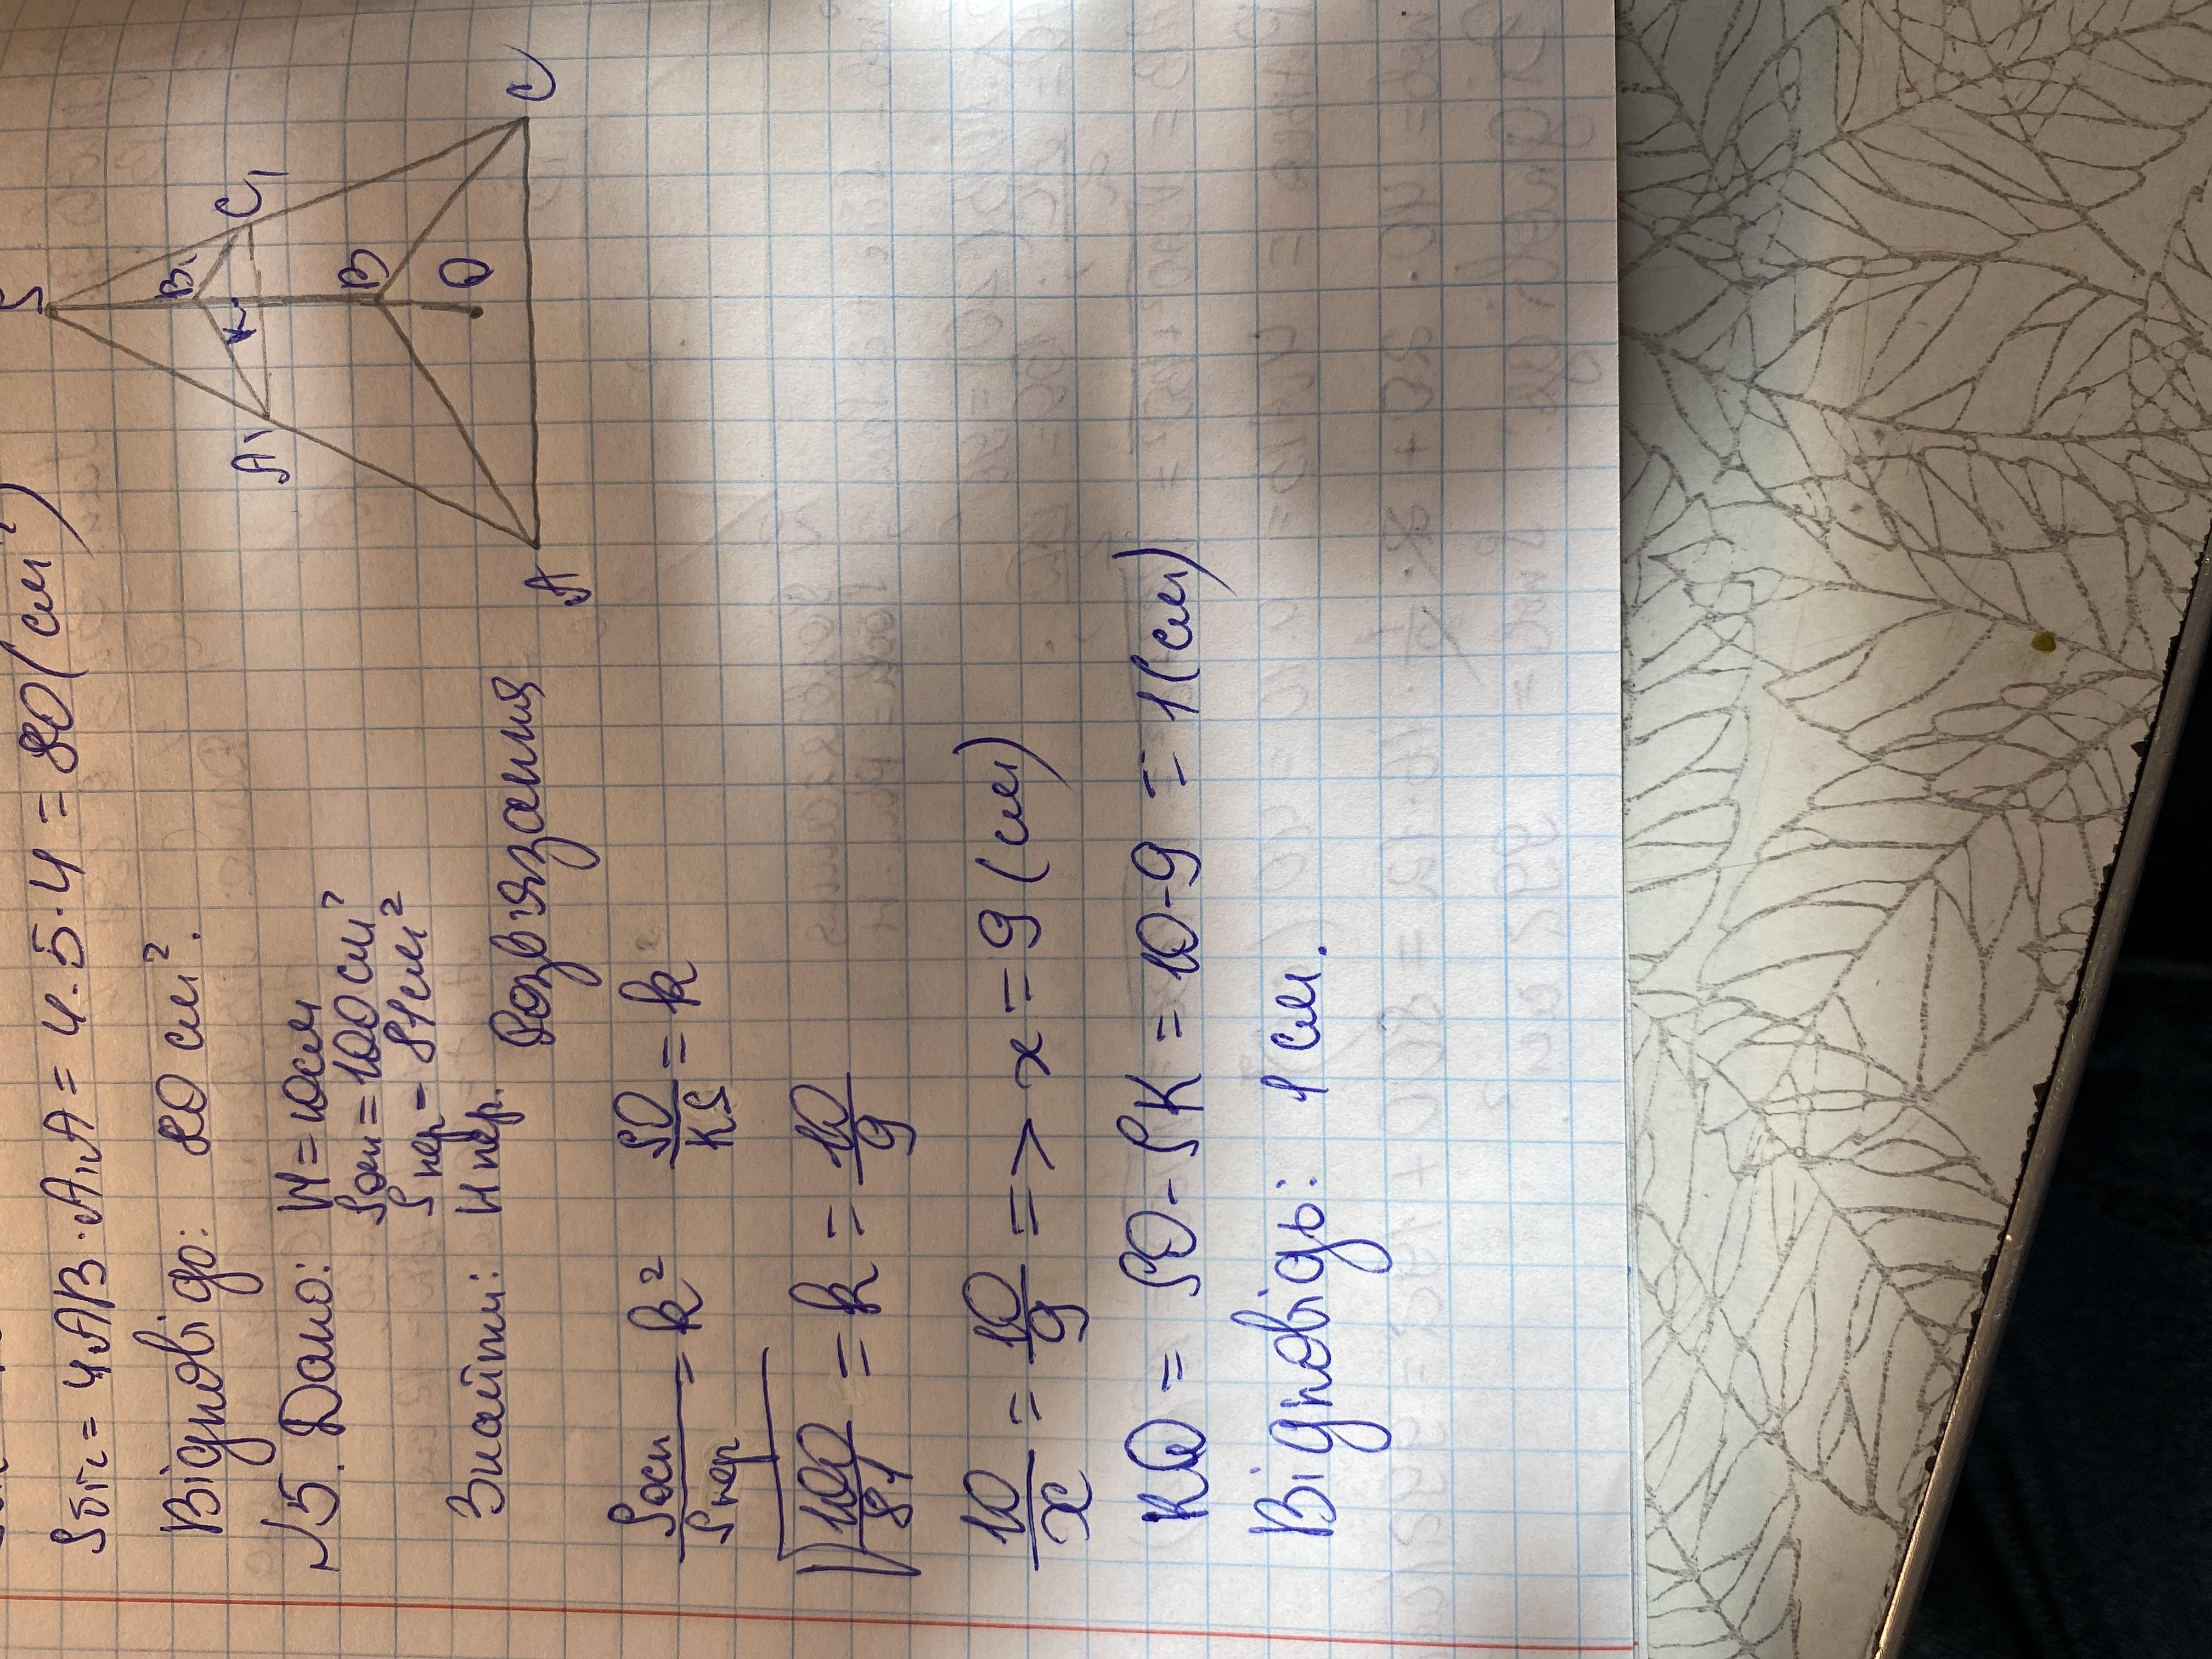 Sбіч = 4AB·A₁A = 4·5·4 = 80 (см²)
Відповідь: 80 см².
√5. Дано: H = 10см
Sосн = 100 см²
Sпер = 81 см²
Знайти: Hпер.
Розв'язання
S
B₁
C₁
A₁
K
B
O
A
C
Sосн/Sпер = k² SO/KS = k
√(100/81) = k = 10/9
10/x = 10/9 => x = 9 (см)
KO = SO - SK = 10 - 9 = 1 (см)
Відповідь: 1 см.